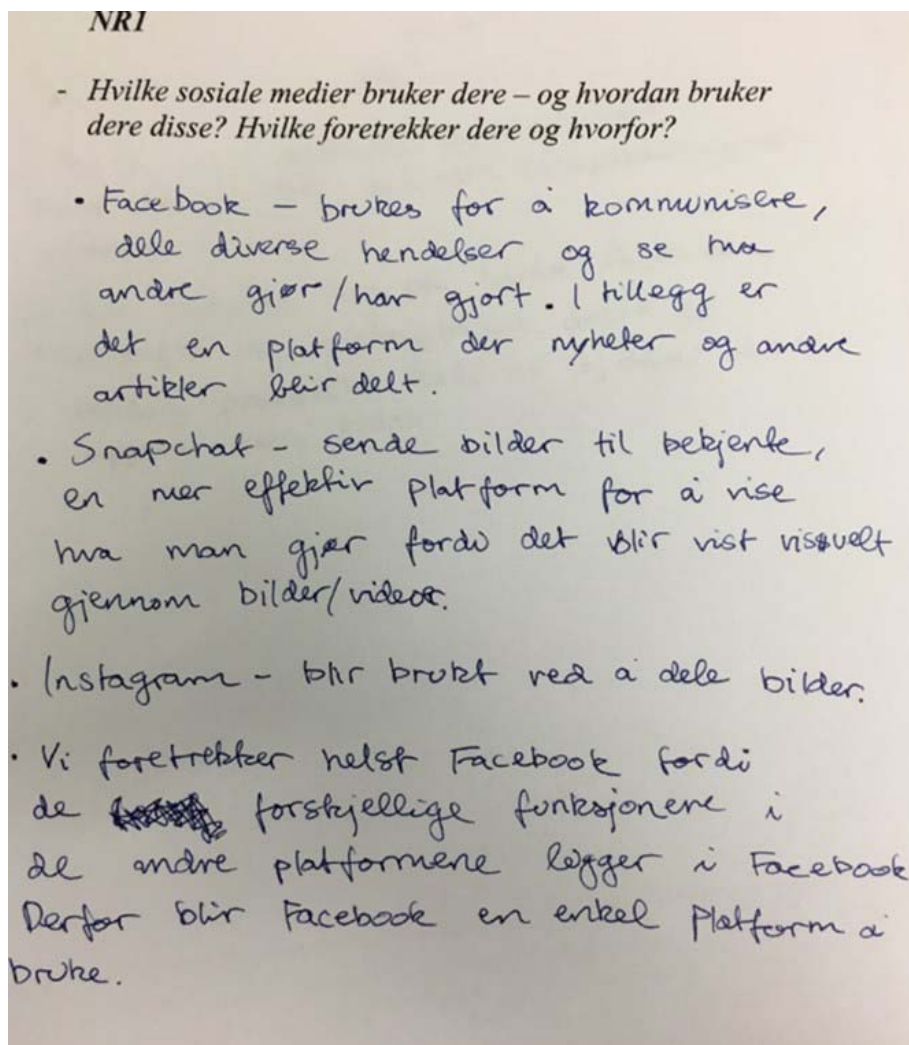 NR1
- Hvilke sosiale medier bruker dere – og hvordan bruker
dere disse? Hvilke foretrekker dere og hvorfor?
• Facebook – brukes for å kommunisere,
dele diverse hendelser og se hva
andre gjør/har gjort. I tillegg er
det en platform der nyheter og andre
artikler blir delt.
• Snapchat – sende bilder til bekjente,
en mer effektiv platform for å vise
hva man gjør fordi det blir vist visuelt
gjennom bilder/videoer.
• Instagram – blir brukt ved å dele bilder.
• Vi foretrekker helst Facebook fordi
de forskjellige funksjonene i
de andre platformene ligger i Facebook
Derfor blir Facebook en enkel platform å
bruke.